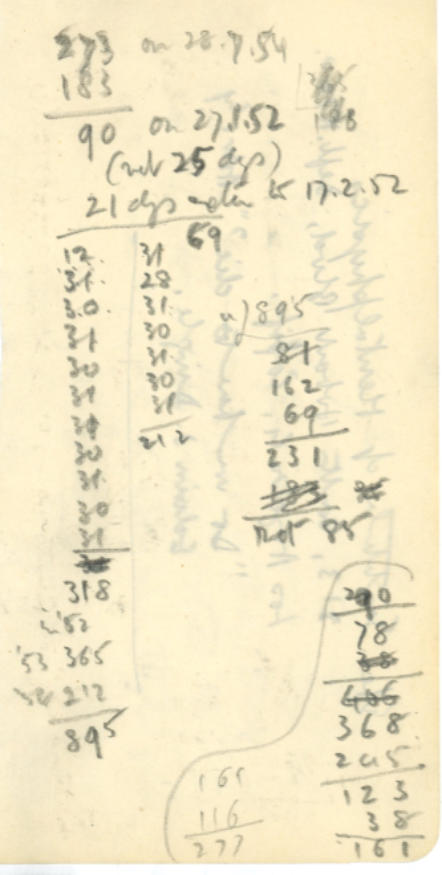 273 on 28.7.54
183
90 on 27.1.52
(not 25 dys)
21 dys to 17.2.52
69
12.
31.
30.
31
30
31
30
31
30
31
318
in '52
'53 365
'54 212
895
31
28
31.
30
31.
30
31
212
895
81
162
69
231
not 85
290
78
368
245
123
38
161
161
116
277